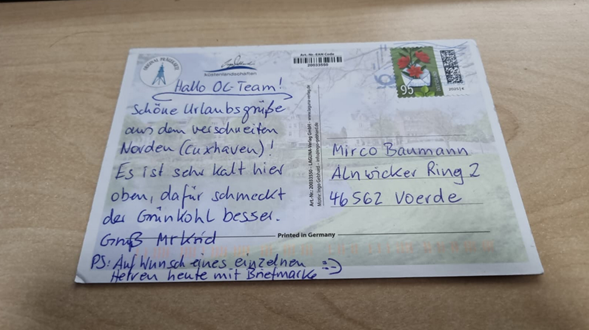 Art.-Nr. EAN-Code
Küstenlandschaften
Hallo OG-Team!
Schöne Urlaubsgrüße
aus dem verschneiten
Norden (Cuxhaven)!
Es ist sehr kalt hier
oben, dafür schmeckt
der Grünkohl besser.
Gruß
PS: Auf Wunsch eines einzelnen
Herren heute mit Briefmarke :-)
95
Mirco Baumann
Alnwicker Ring 2
46562 Voerde
Printed in Germany